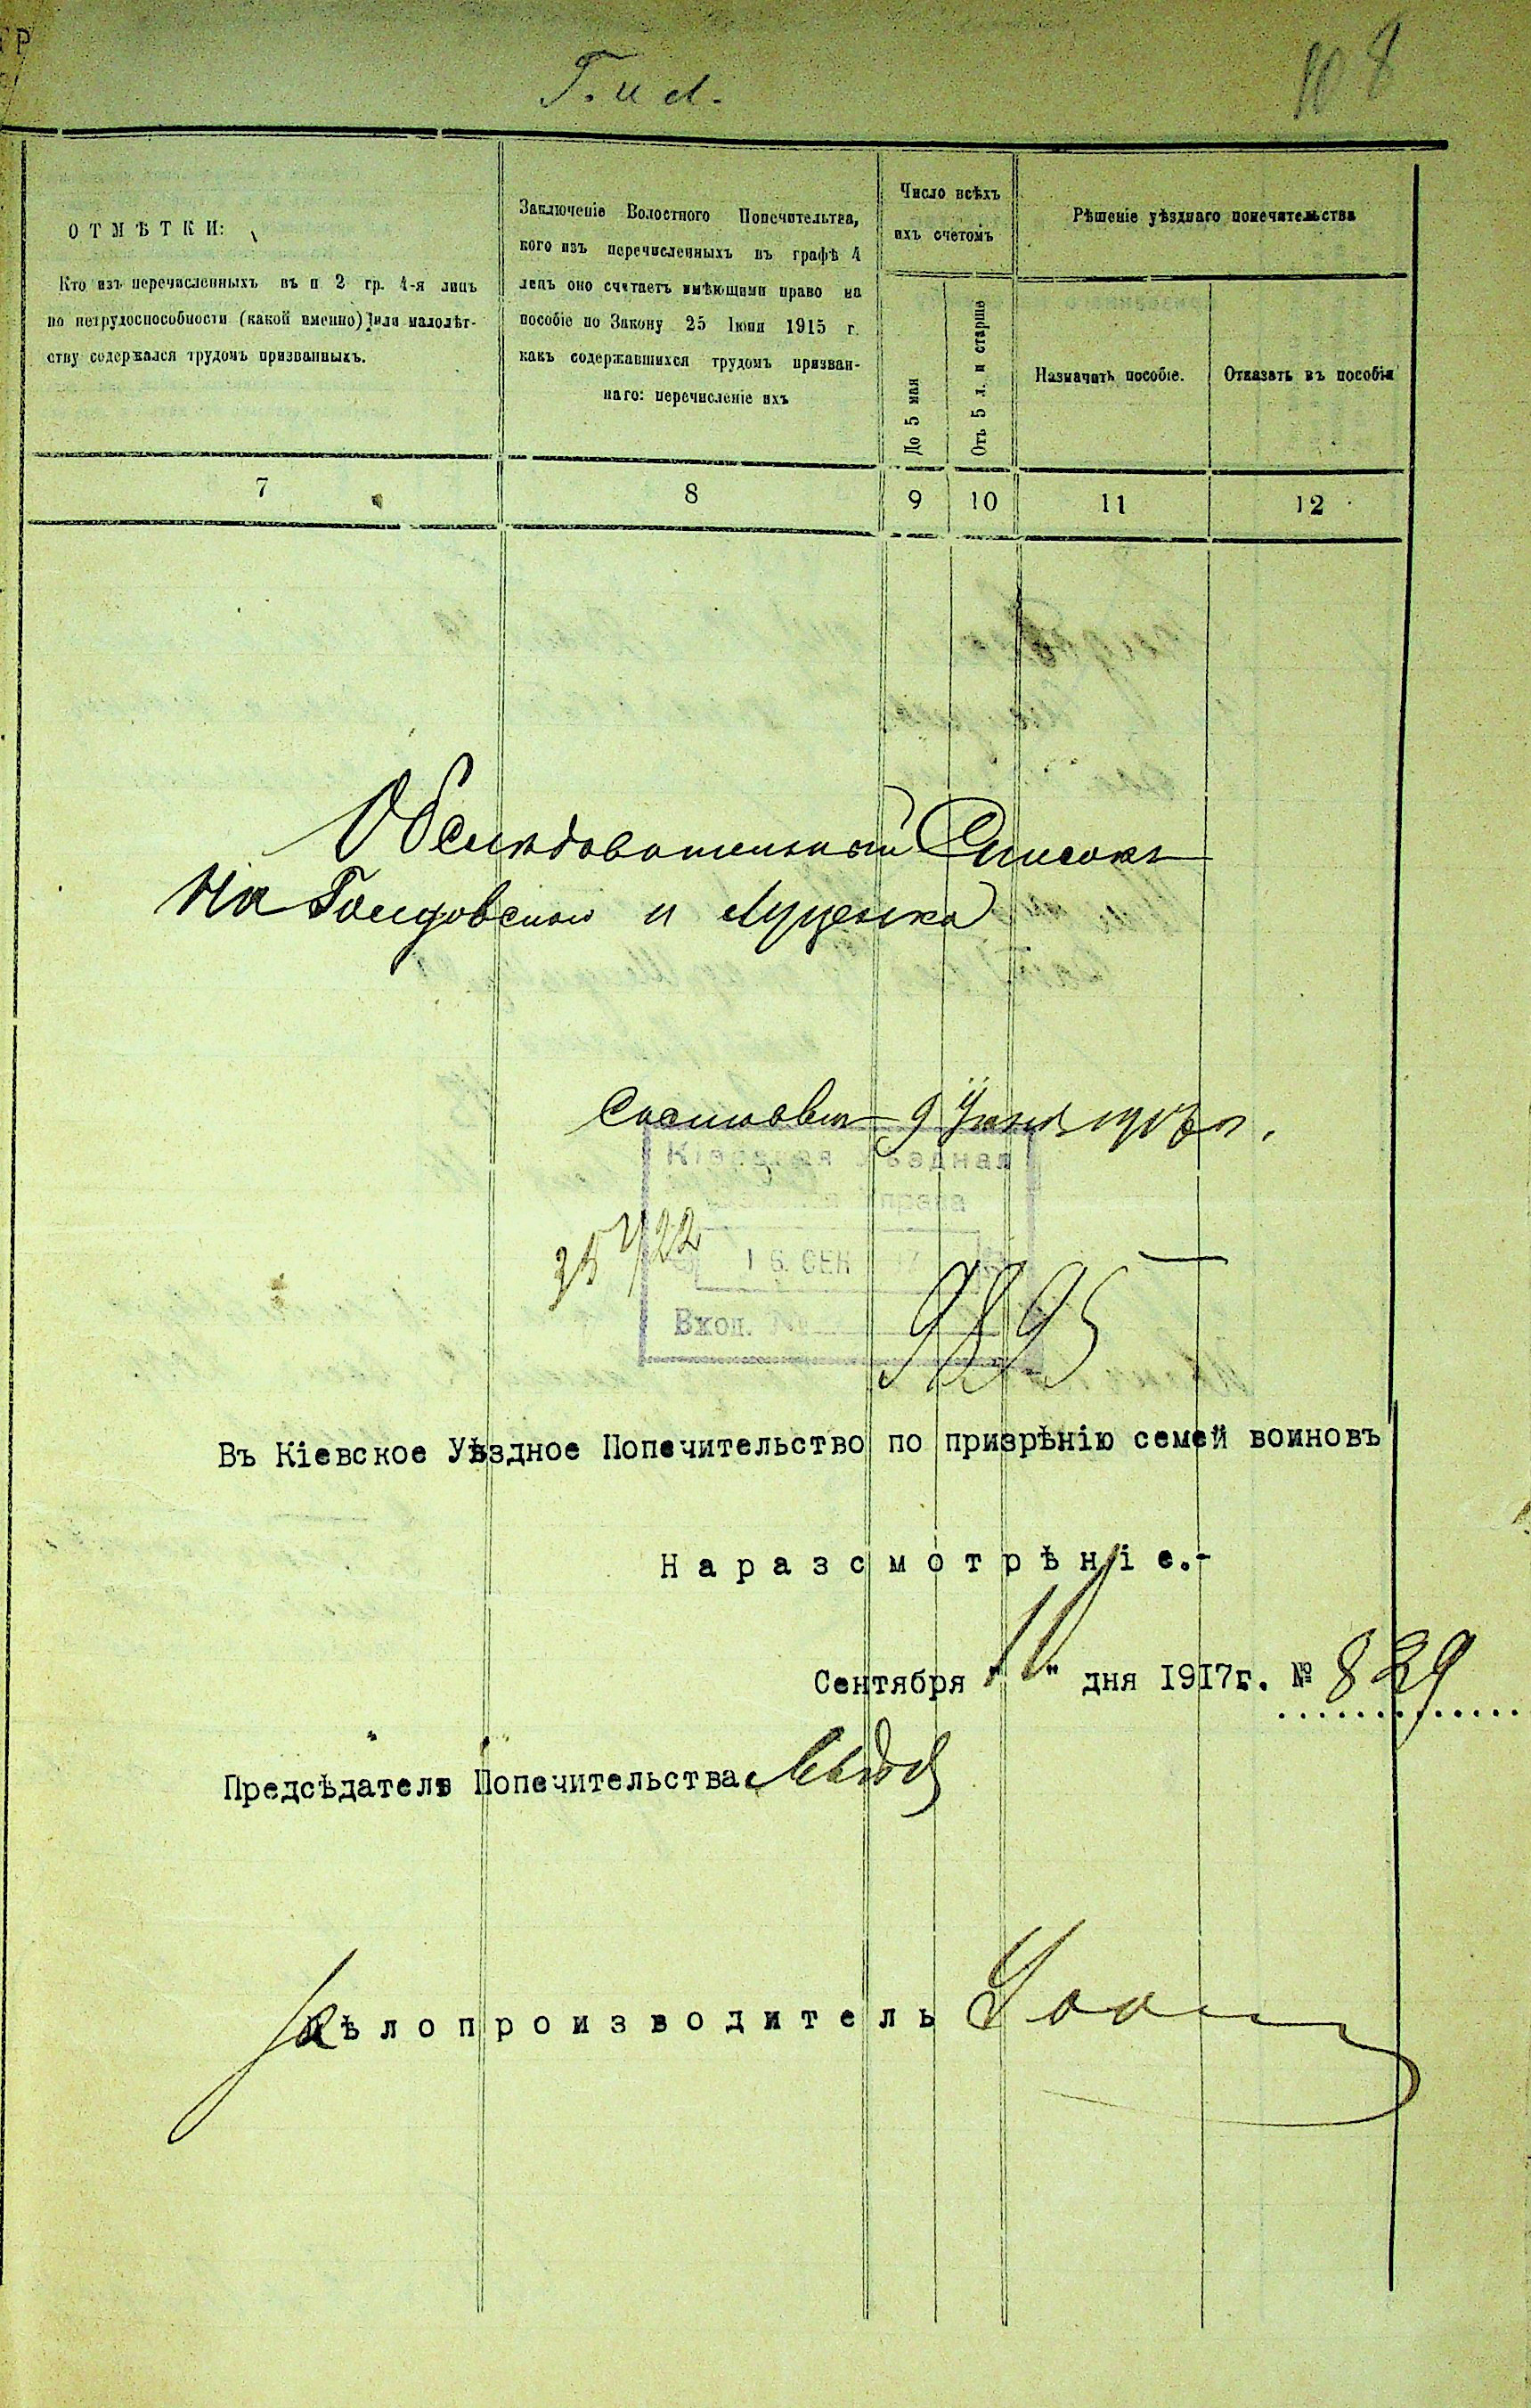 Г. и Л.
108
ОТМѢТКИ:
Кто изъ перечисленныхъ въ п 2 гр. 4-я лицъ
по нетрудоспособности (какой именно) или малолѣт-
ству содержался трудомъ призванныхъ.
Заключеніе Волостного Попечительтва,
кого изъ перечисленныхъ въ графѣ 4
лицъ оно считаетъ имѣющими право на
пособіе по Закону 25 Іюня 1915 г.
какъ содержавшихся трудомъ призван-
наго: перечисленіе ихъ
Число всѣхъ
ихъ счетомъ
До 5 мая
Отъ 5 л. и старше
Рѣшеніе уѣзднаго попечительства
Назначить пособіе.
Отказать въ пособіи
7 8 9 10 11 12
Обслѣдовательный Списокъ
на Голдовскаго и Луценка
9 Іюня 1917 г.
Кіевская Уѣздная
Управа
16 СЕН 17
Вход. №
9895
Въ Кіевское Уѣздное Попечительство по призрѣнію семей воиновъ
На разсмотрѣніе.-
Сентября "11" дня 1917г. № 829
Предсѣдатель Попечительства
Дѣлопроизводитель